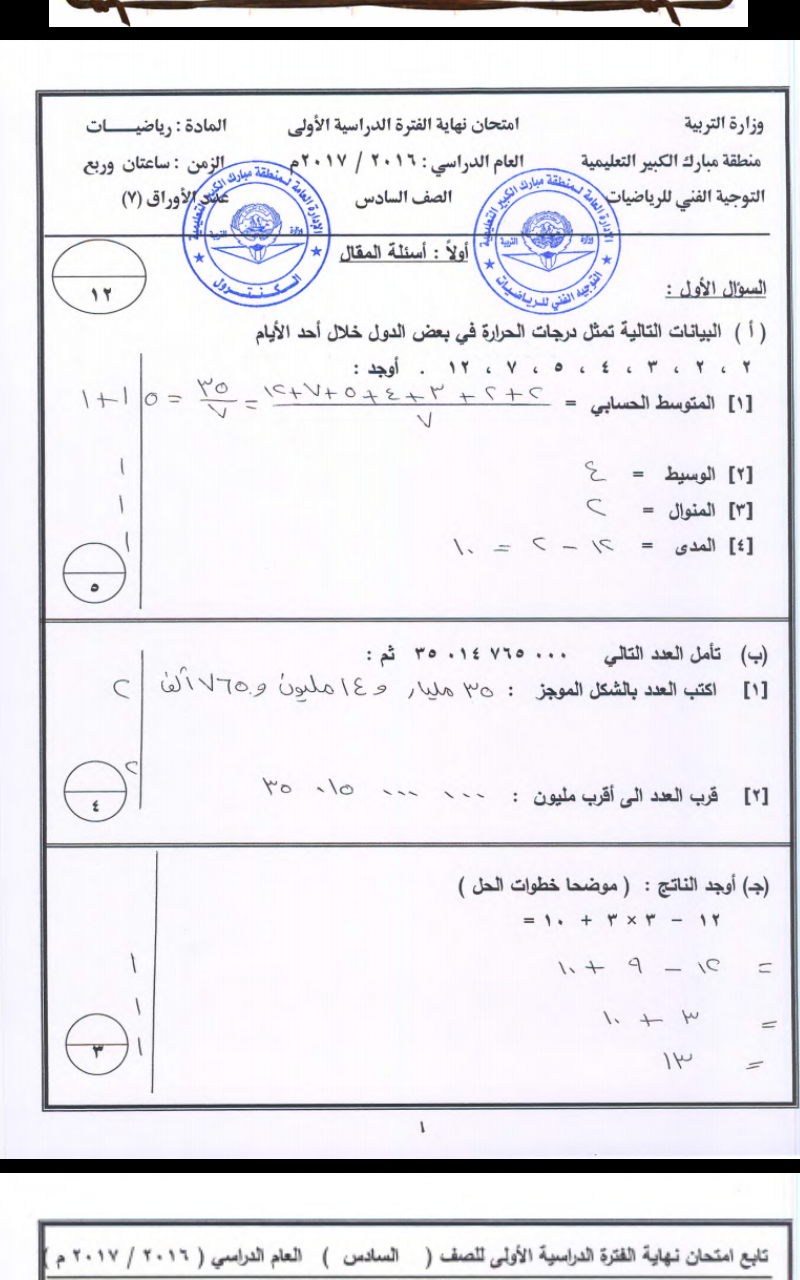 وزارة التربية امتحان نهاية الفترة الدراسية الأولى المادة : رياضيــــات
منطقة مبارك الكبير التعليمية العام الدراسي : ٢٠١٦ / ٢٠١٧م الزمن : ساعتان وربع
التوجية الفني للرياضيات الصف السادس عدد الأوراق (٧)
الإدارة العامة لمنطقة مبارك الكبير التعليمية
وزارة التربية
السكنترول
الإدارة العامة لمنطقة مبارك الكبير التعليمية
وزارة التربية
التوجيه الفني للرياضيات
أولاً : أسئلة المقال
١٢
السؤال الأول :
( أ ) البيانات التالية تمثل درجات الحرارة في بعض الدول خلال أحد الأيام
٢ ، ٢ ، ٣ ، ٤ ، ٥ ، ٧ ، ١٢ . أوجد :
[١] المتوسط الحسابي = ٢+٢+٣+٤+٥+٧+١٢ / ٧ = ٣٥ / ٧ = ٥ ١+١
[٢] الوسيط = ٤ ١
[٣] المنوال = ٢ ١
[٤] المدى = ١٢ − ٢ = ١٠ ١
٥
(ب) تأمل العدد التالي ٣٥ ٠١٤ ٧٦٥ ٠٠٠ ثم :
[١] اكتب العدد بالشكل الموجز : ٣٥ مليار و ١٤ مليون و ٧٦٥ ألف ٢
[٢] قرب العدد الى أقرب مليون : ٣٥ ٠١٥ ٠٠٠ ٠٠٠ ٢
٤
(جـ) أوجد الناتج : ( موضحا خطوات الحل )
١٢ − ٣ × ٣ + ١٠ =
= ١٢ − ٩ + ١٠ ١
= ٣ + ١٠ ١
= ١٣ ١
٣
١
تابع امتحان نهاية الفترة الدراسية الأولى للصف ( السادس ) العام الدراسي ( ٢٠١٦ / ٢٠١٧ م )